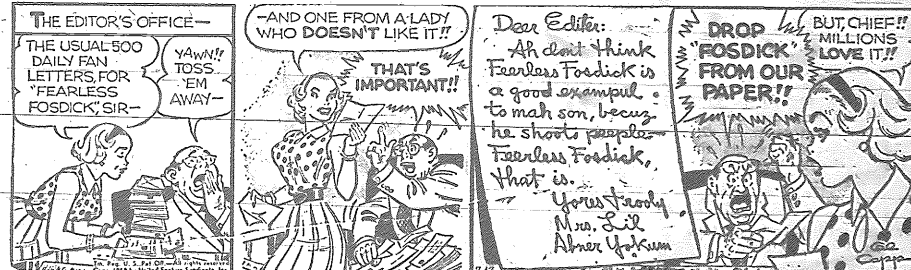 THE EDITOR'S OFFICE—
THE USUAL 500
DAILY FAN
LETTERS, FOR
"FEARLESS
FOSDICK", SIR—
YAWN!!
TOSS
'EM
AWAY—
—AND ONE FROM A LADY
WHO DOESN'T LIKE IT!!
THAT'S
IMPORTANT!!
Dear Editer:
Ah don't think
Feerless Fosdick is
a good exampul
to mah son, becuz
he shoots peeple—
Feerless Fosdick,
that is.
Yores Trooly
Mrs. Li'l
Abner Yokum
DROP
"FOSDICK"
FROM OUR
PAPER!!
BUT, CHIEF!!
MILLIONS
LOVE IT!!
Tm. Reg. U. S. Pat. Off.—All rights reserved
Al
Capp